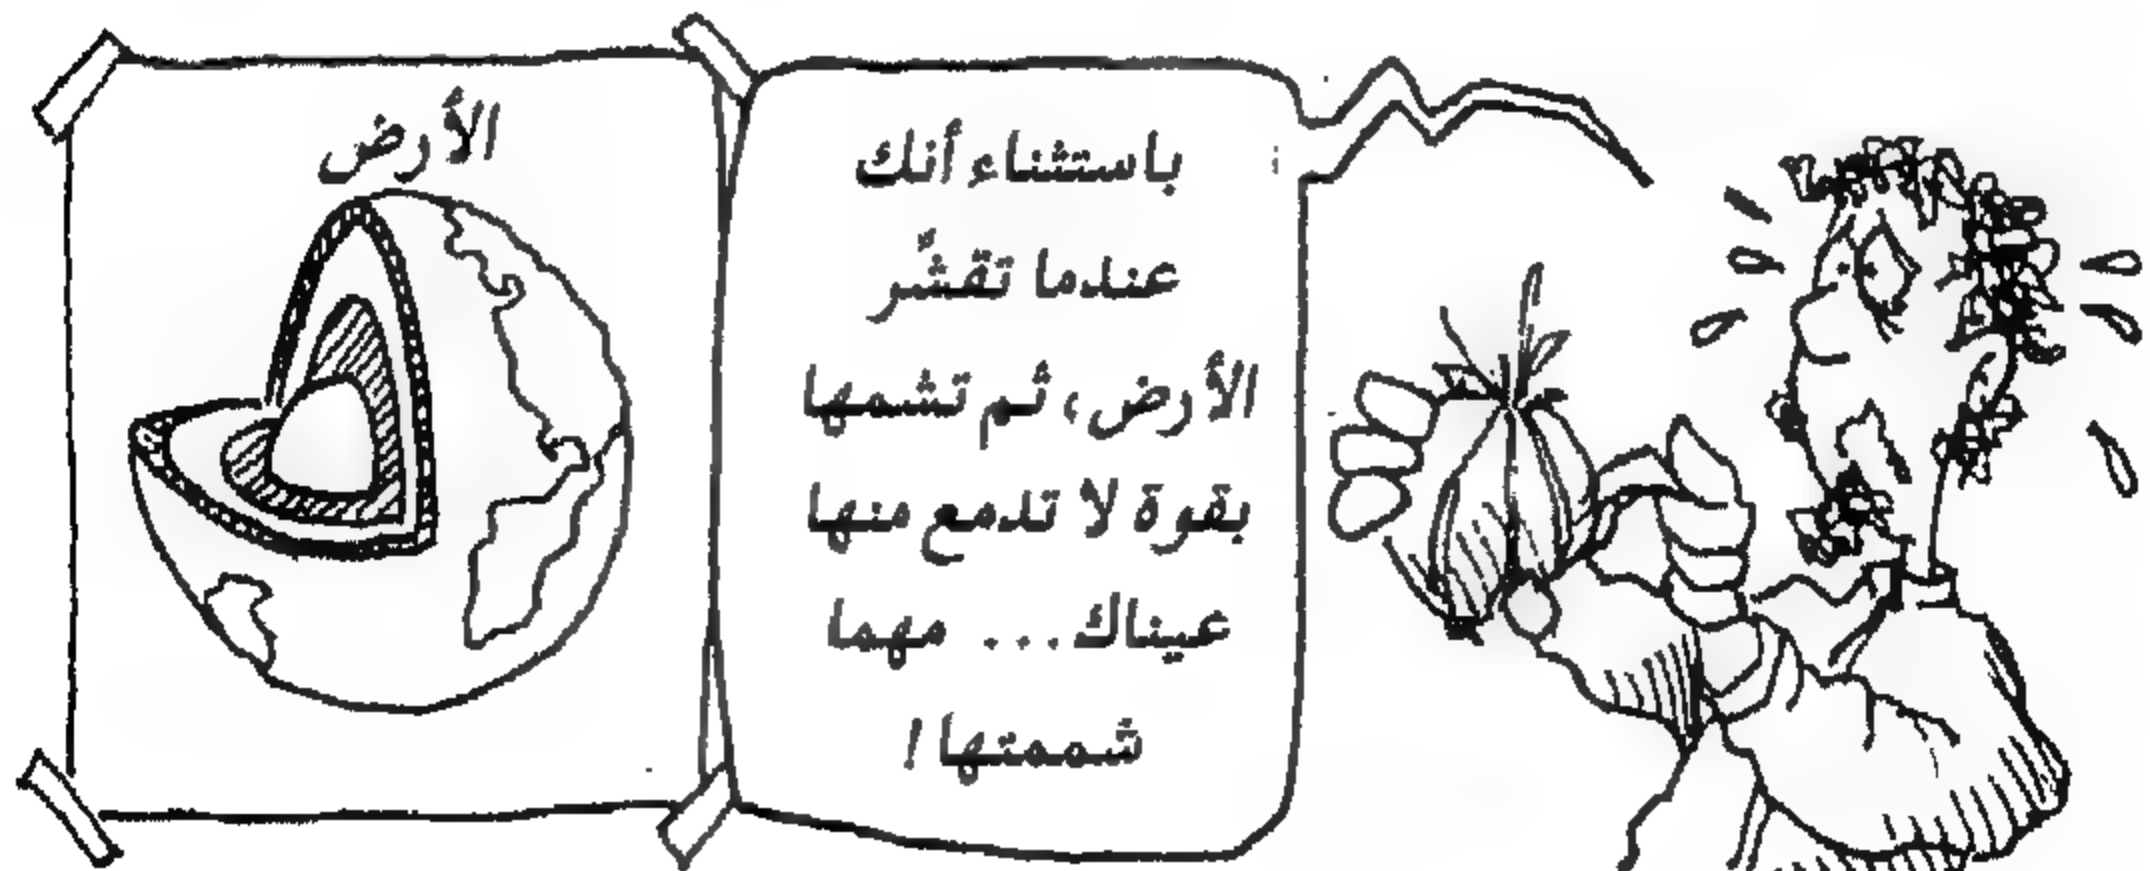 الأرض
باستثناء أنك
عندما تقشّر
الأرض، ثم تشمها
بقوة لا تدمع منها
عيناك... مهما
شممتها!